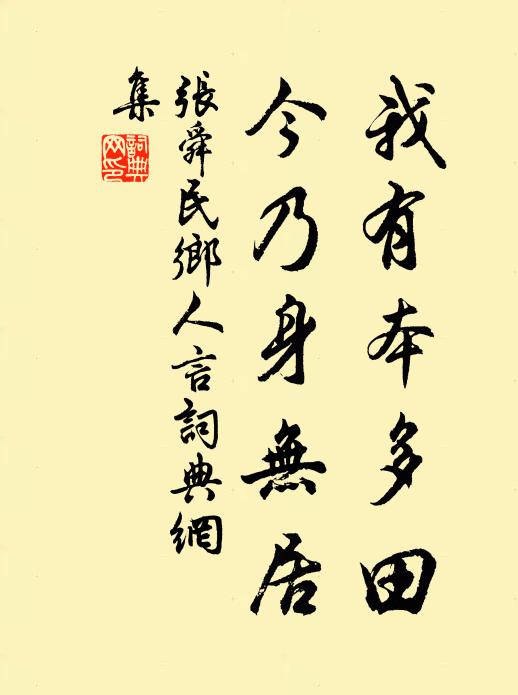 我有本多田
今乃身無居
張舜民鄉人言詞典網
集
詞典
网印